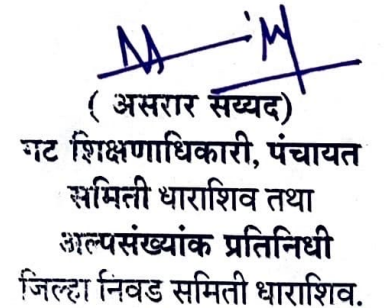 ( असरार सय्यद)
गट शिक्षणाधिकारी, पंचायत
समिती धाराशिव तथा
अल्पसंख्यांक प्रतिनिधी
जिल्हा निवड समिती धाराशिव.